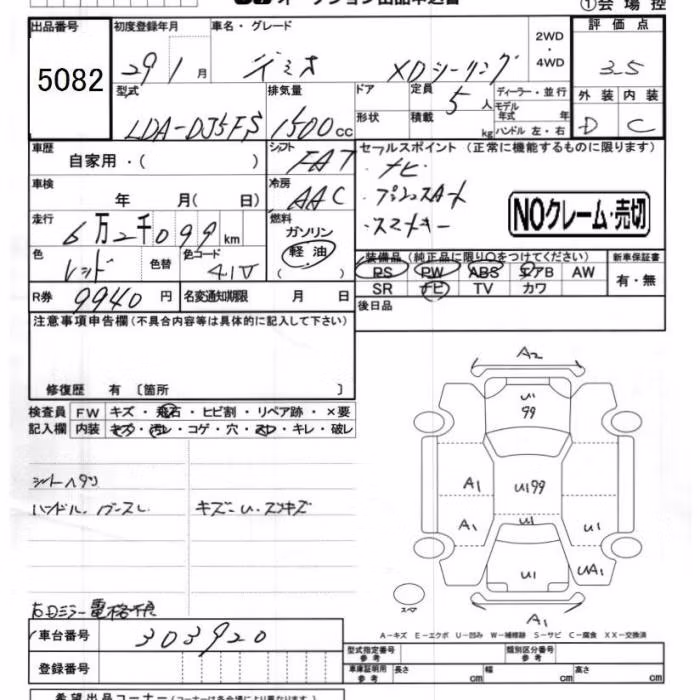 オークション出品申込書
①会場控
出品番号 初度登録年月 車名・グレード 2WD・4WD 評価点
5082 29 1月 デミオ XDツーリング 3.5
型式 排気量 ドア 定員 5人 ディーラー・並行 外装 内装
LDA-DJ5FS 1500cc 形状 積載 kg モデル年式 年 ハンドル 左・右 D C
車歴 自家用・( ) シフト FAT セールスポイント (正常に機能するものに限ります)
・ナビ
車検 年 月( 日) 冷房 AAC ・プッシュスタート
・スマートキー
NOクレーム・売切
走行 6万2千099km 燃料 ガソリン 軽油 ( )
色 レッド 色替 色コード 41V
装備品 (純正品に限り○をつけてください) 新車保証書
PS PW ABS エアB AW 有・無
SR ナビ TV カワ
R券 9940円 名変通知期限 月 日 後日品
注意事項申告欄(不具合内容等は具体的に記入して下さい)
修復歴 有 〔箇所 〕
検査員 FW キズ・飛石・ヒビ割・リペア跡・×要
記入欄 内装 キズ・汚レ・コゲ・穴・スレ・キレ・破レ
シートヘタリ
キズ・U・スリキズ
右Dミラー電格不良
A2
U1
99
A1 U199
A1 U1 U1
U1 UA1
スペア
A1
A-キズ E-エクボ U-凹み W-補修跡 S-サビ C-腐食 XX-交換済
車台番号 303920
登録番号
型式指定番号 参考 類別区分番号 参考
車庫証明用 参考 長さ cm 幅 cm 高さ cm
希望出品コーナー(コーナーは各会場により異なります)